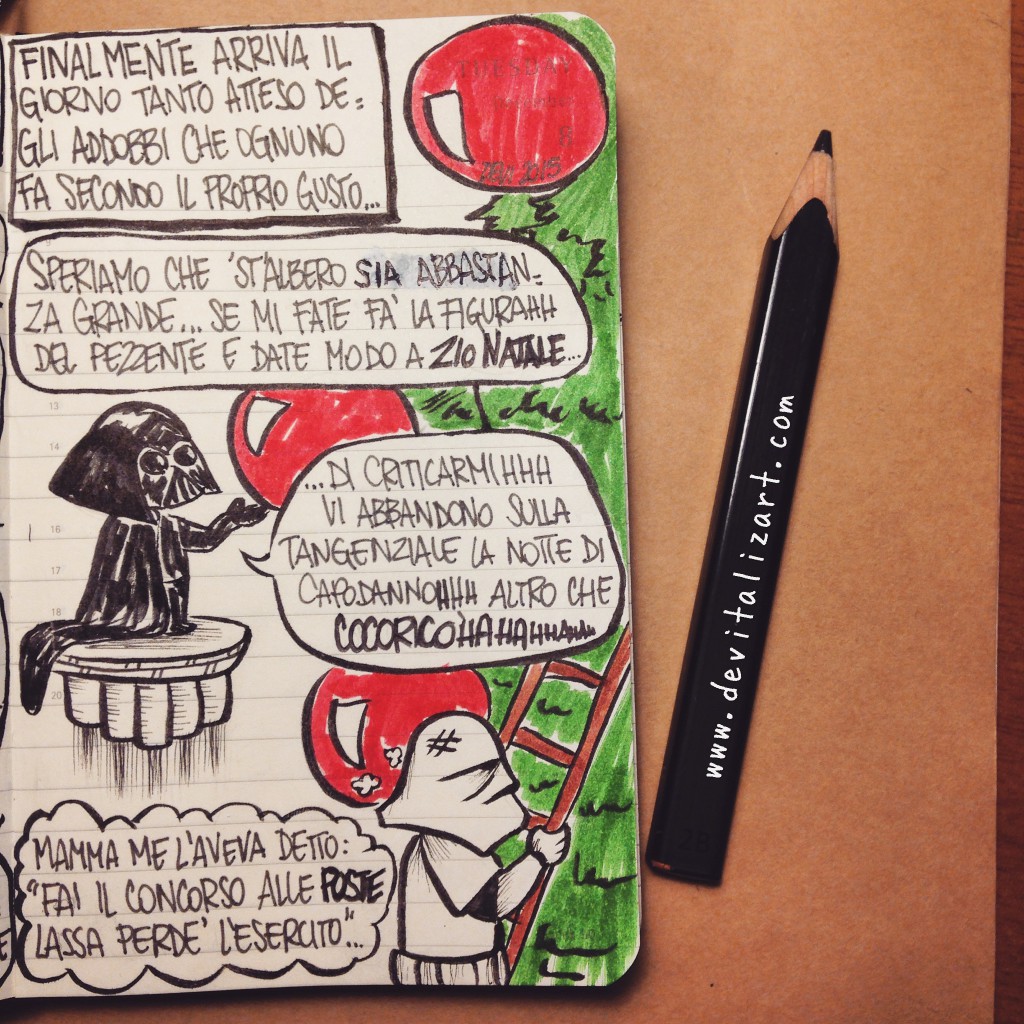 FINALMENTE ARRIVA IL
GIORNO TANTO ATTESO DE:
GLI ADDOBBI CHE OGNUNO
FA SECONDO IL PROPRIO GUSTO...
TUESDAY
SPERIAMO CHE 'ST'ALBERO SIA ABBASTAN-
ZA GRANDE... SE MI FATE FA' LA FIGURAHH
DEL PEZZENTE E DATE MODO A ZIO NATALE...
...DI CRITICARMIHHH
VI ABBANDONO SULLA
TANGENZIALE LA NOTTE DI
CAPODANNOHHH ALTRO CHE
COCORICO'HAHAHHAHAH
13
14
16
17
18
20
#
MAMMA ME L'AVEVA DETTO:
"FAI IL CONCORSO ALLE POSTE
LASSA PERDE' L'ESERCITO"...
www.devitalizart.com